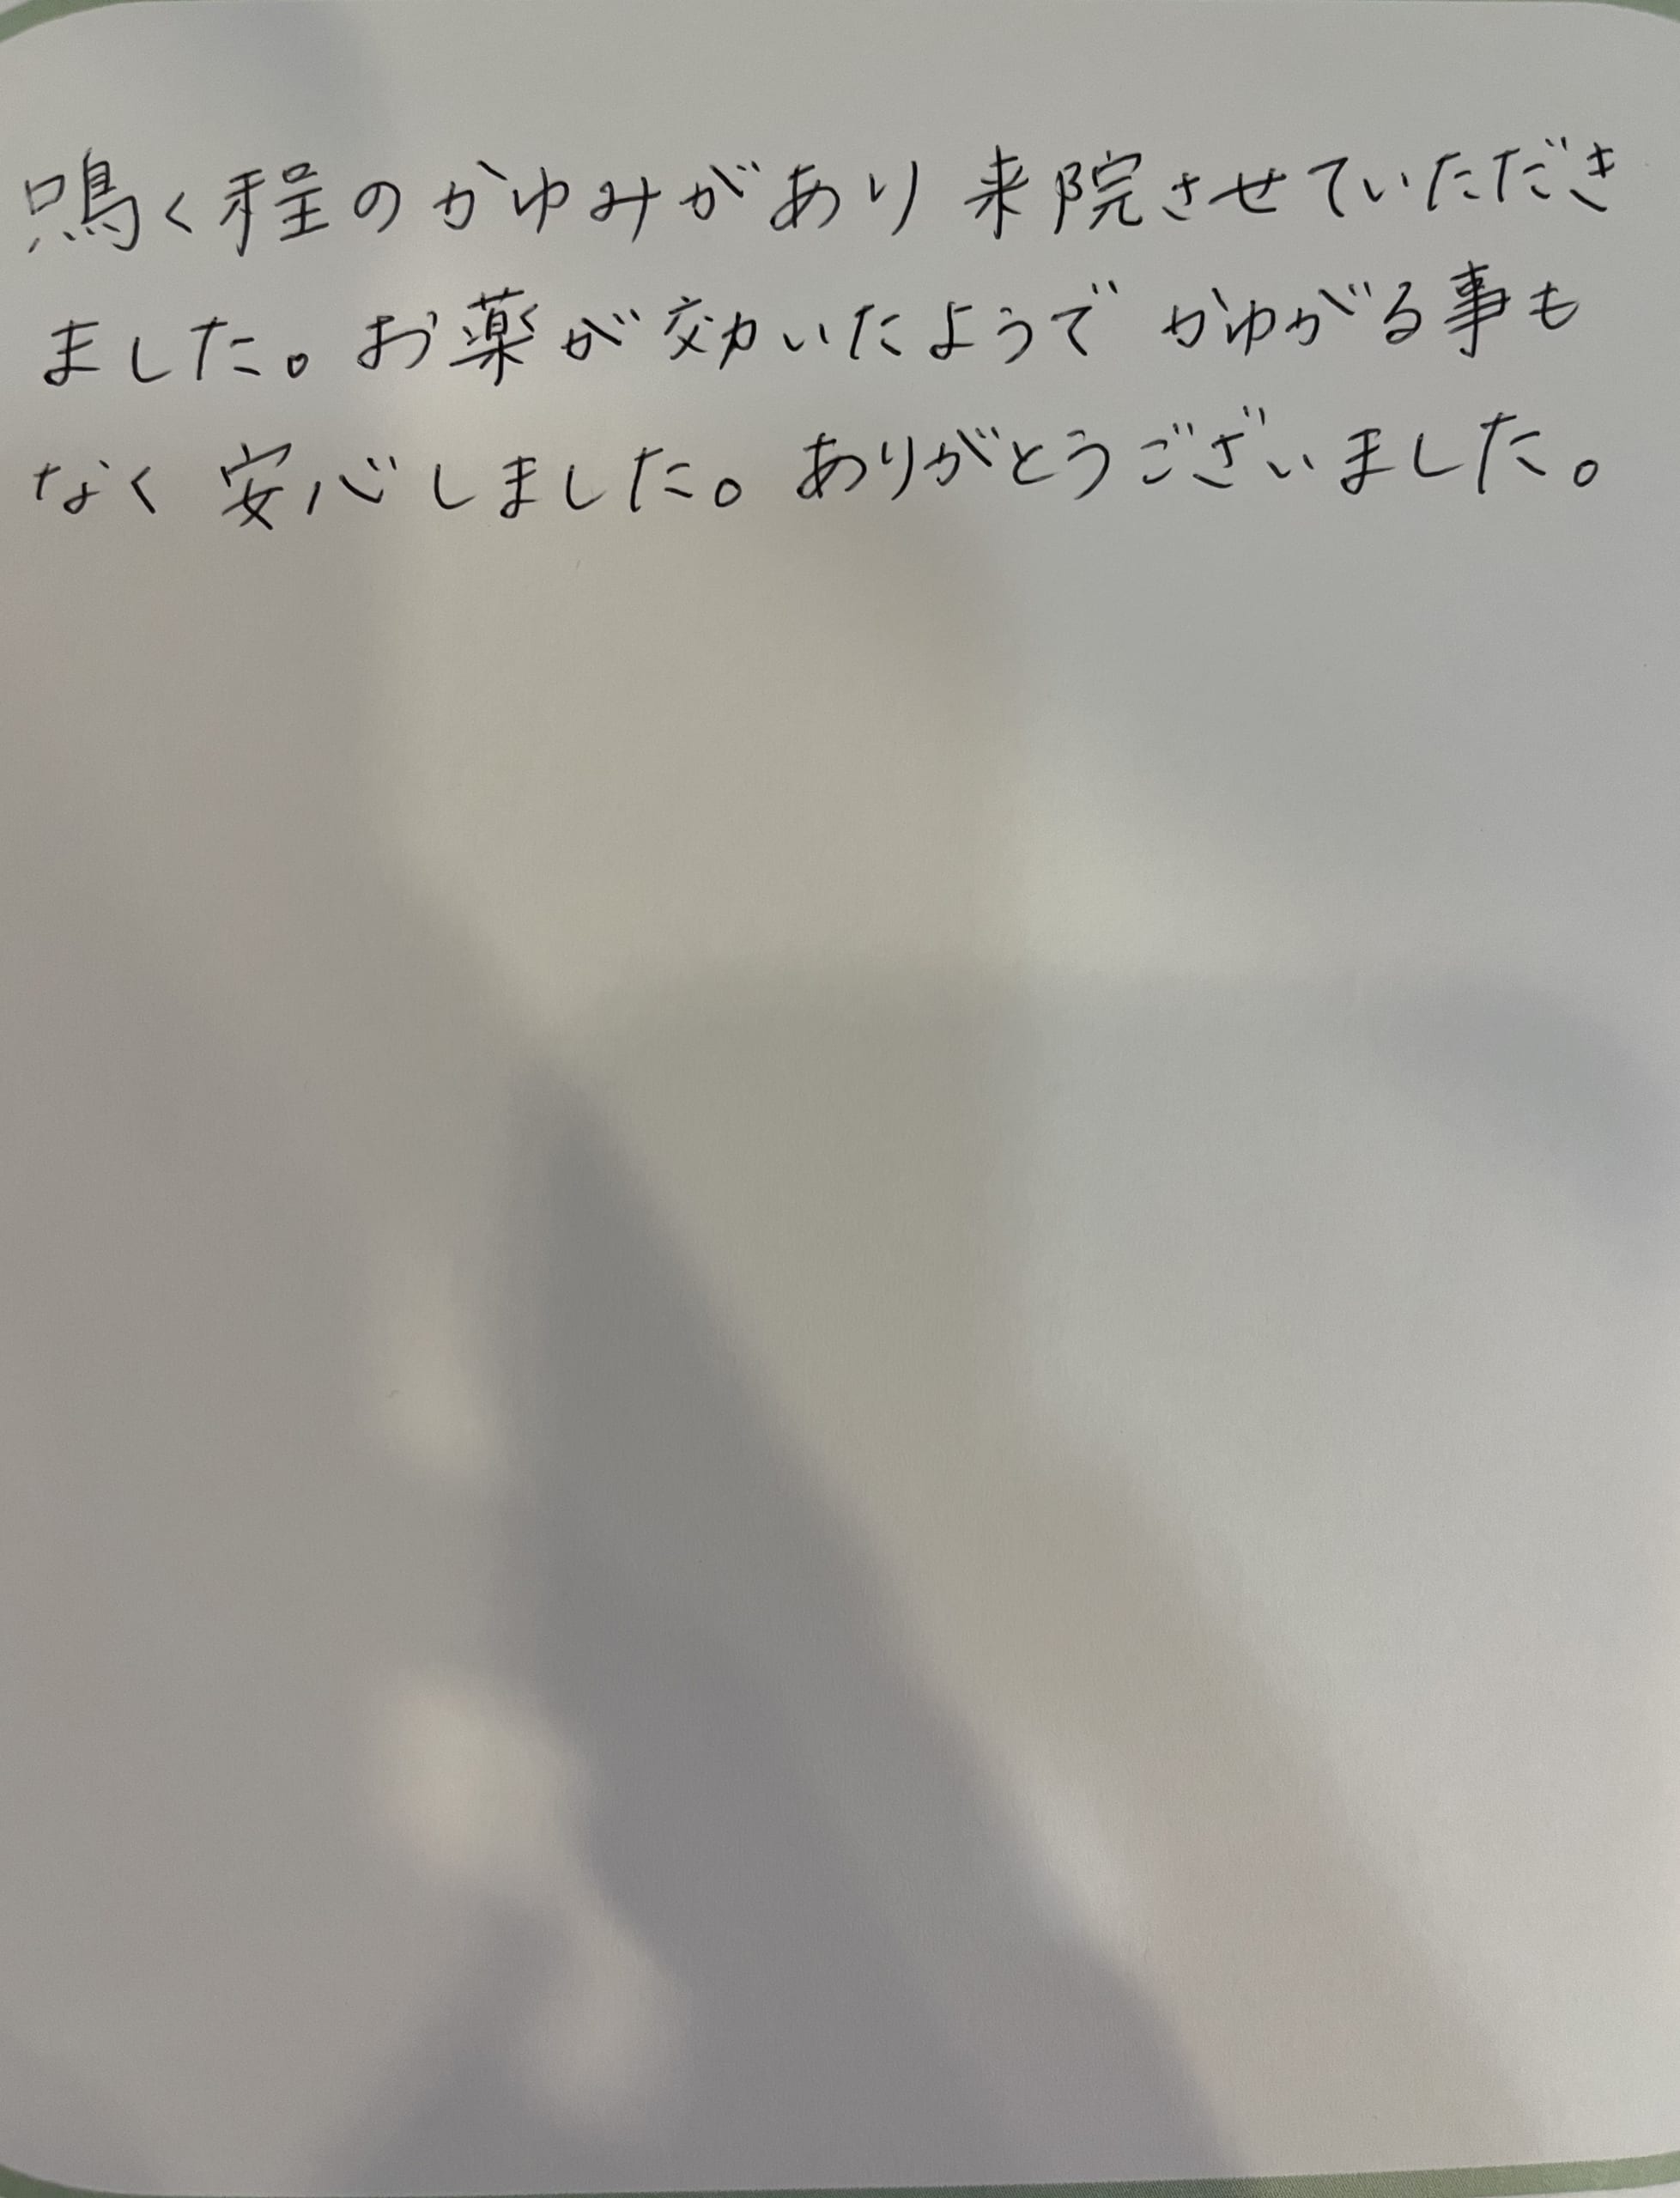 鳴く程のかゆみがあり来院させていただき
ました。お薬が効いたようでかゆがる事も
なく安心しました。ありがとうございました。